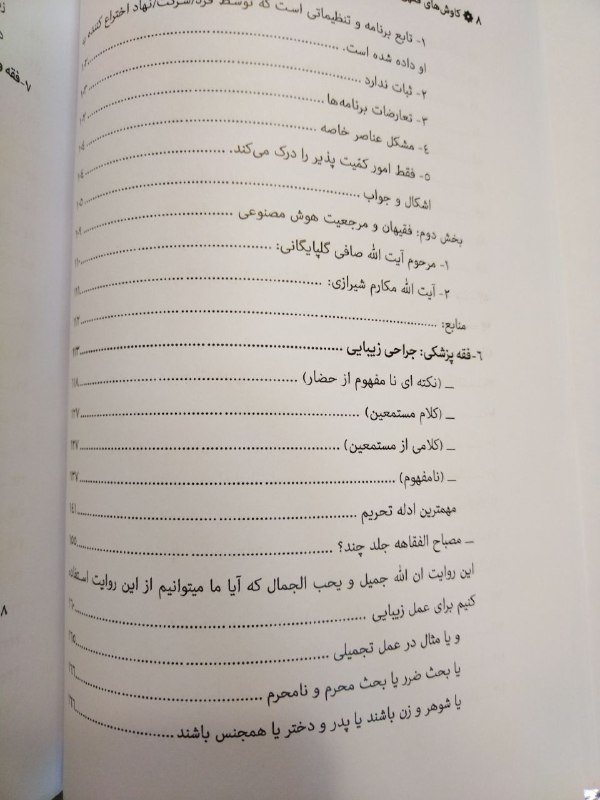 ۸ کاوش‌های
۱- تابع برنامه و تنظیماتی است که توسط فرد/شرکت/نهاد اختراع کننده به
او داده شده است.
۲- ثبات ندارد ۱۰۳
۳- تعارضات برنامه‌ها
۴- مشکل عناصر خاصه ۱۰۴
۵- فقط امور کمّیت پذیر را درک می‌کند. ۱۰۴
اشکال و جواب ۱۰۵
بخش دوم: فقیهان و مرجعیت هوش مصنوعی ۱۰۹
۱- مرحوم آیت الله صافی گلپایگانی: ۱۱۰
۲- آیت الله مکارم شیرازی: ۱۱۱
منابع: ۱۱۲
۶- فقه پزشکی: جراحی زیبایی ۱۱۳
_ (نکته ای نا مفهوم از حضار) ۱۱۸
_ (کلام مستمعین) ۱۲۷
_ (کلامی از مستمعین) ۱۲۷
_ (نامفهوم) ۱۳۷
مهمترین ادله تحریم ۱۴۱
_ مصباح الفقاهه جلد چند؟ ۱۵۵
این روایت ان الله جمیل و یحب الجمال که آیا ما میتوانیم از این روایت استفاده
کنیم برای عمل زیبایی ۱۶۰
و یا مثال در عمل تجمیلی ۱۶۵
یا بحث ضرر یا بحث محرم و نامحرم ۱۶۶
یا شوهر و زن باشند یا پدر و دختر یا همجنس باشند ۱۶۶
۷- فقه و
۸